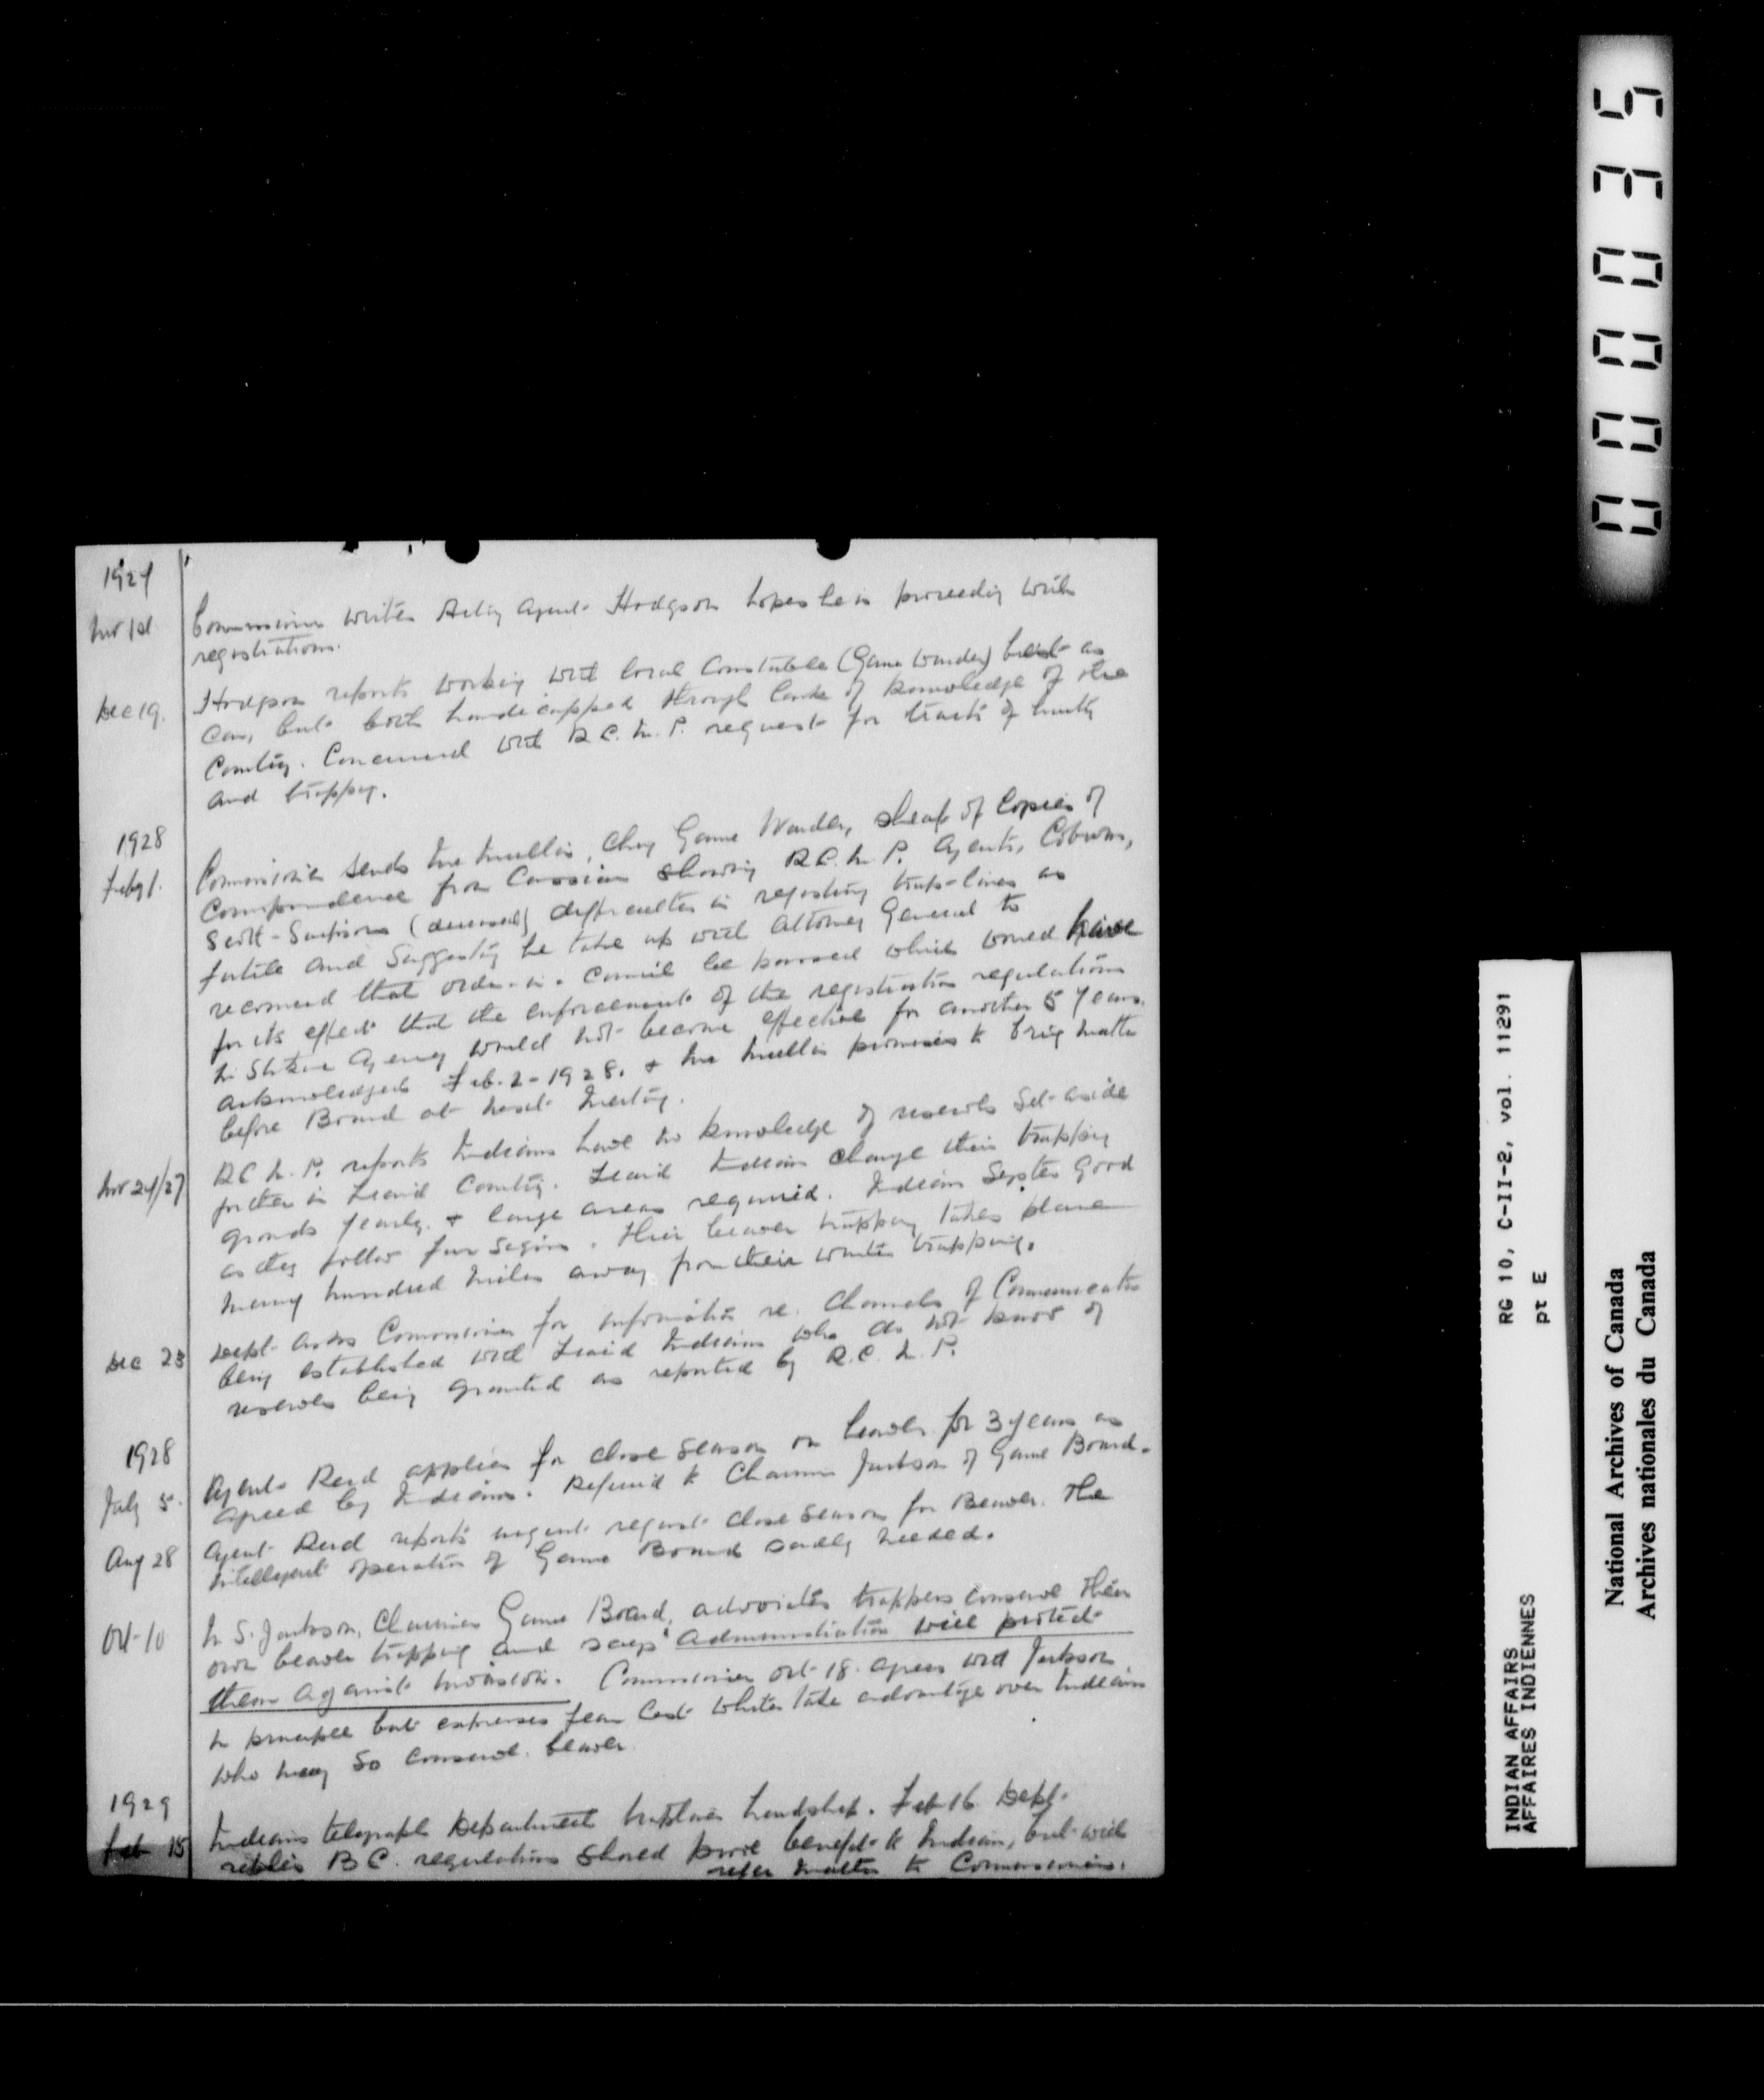 1927
Nov 1st Commissioner writes Acting Agent Hodgson hopes he is proceeding with
registrations.
Dec 19. Hodgson reports working with local Constable (Game Warden) best as
can, but both handicapped through lack of knowledge of the
Country. Concerned with R.C.M.P. request for tracts of hunting
and trapping.
1928
Feby 1. Commissioner sends Game Warden, sheaf of copies of
correspondence from Cassiar showing R.C.M.P. Agents,
Scott-Simpson (deceased) difficulties in registering trap-lines as
futile and suggesting he take up with Attorney General to
recomend that order-in-council be passed which would have
for its effect that the enforcement of the registration regulations
in Stikine Agency would not become effective for another 5 years.
acknowledged Feb. 2-1928. + promises to bring matter
before Board at next meeting.
Nov 24/27 R.C.M.P. reports Indians have no knowledge of reserves set aside
for them in Liard Country. Liard Indians change their trapping
grounds yearly. + large areas required. Indian System good
as they follow fur signs. Their beaver trapping takes place
many hundred miles away from their winter trapping.
Dec 23 Dept. asks Commissioner for information re. Channels of Communication
being established with Liard Indians who do not know of
reserves being granted as reported by R.C.M.P.
1928
July 5. Agent Reed applies for close season on beaver for 3 years as
agreed by Indians. Referred to Chairman Jackson of Game Board.
Aug 28 Agent Reed reports urgent request close season for Beaver. The
intelligent operation of Game Board sadly needed.
Oct-10 M.S. Jackson, Chairman Game Board, advocates trappers conserve their
own beaver trapping and says "administration will protect
them against invasion. Commissioner Oct-18. agrees with Jackson
in principle but expresses fear lest whites take advantage over Indians
who may so conserve beaver.
1929
Feb 15 Indians telegraph Department hardship. Feb 16 Dept.
replies B.C. regulations should prove benefit to Indian, but will
refer matter to Commissioner.
000035
INDIAN AFFAIRS RG 10, C-II-2, vol. 11291
AFFAIRES INDIENNES pt E
National Archives of Canada
Archives nationales du Canada